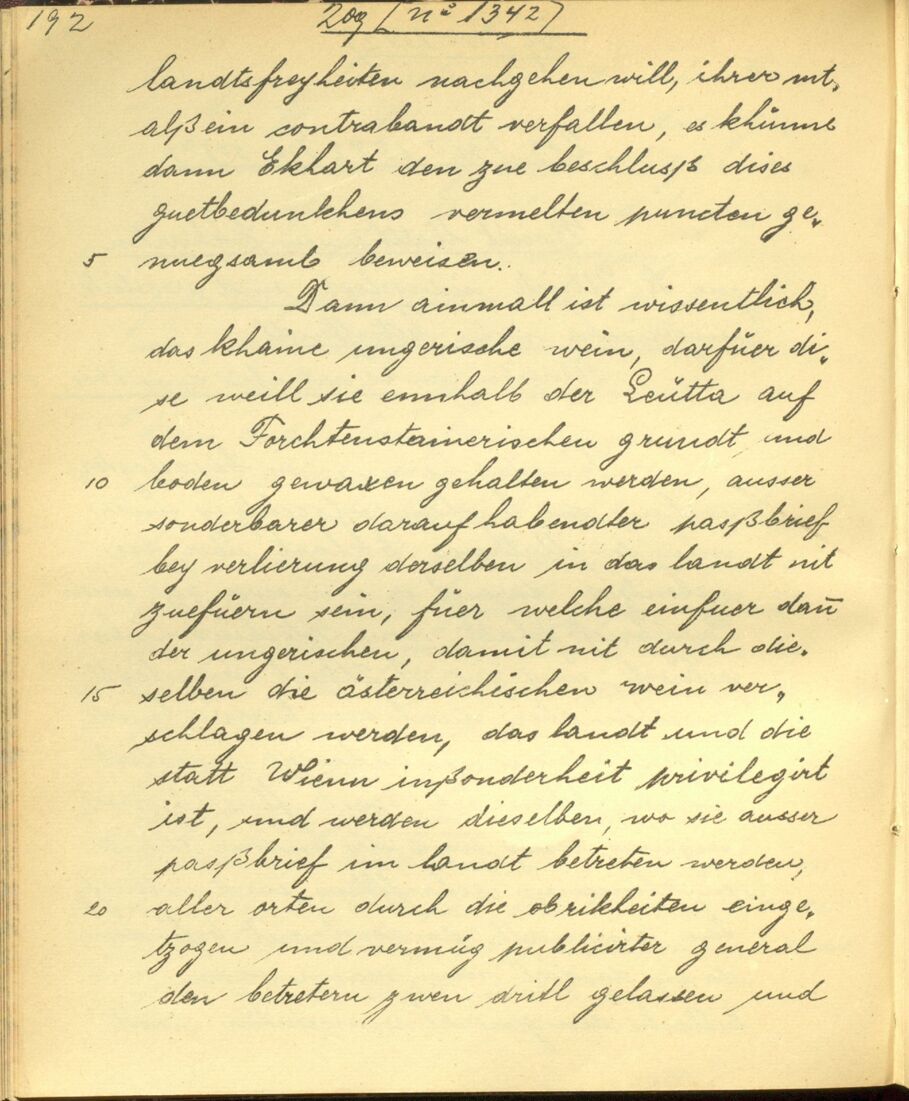 192 209 [nº 1342]
landtsfreyheiten nachgehen will, ihrer nit,
alß ein contrabandt verfallen, es khünne
dann Ekhart den zue beschlusß dises
guetbedunkhens vermelten puncten ge„
5 nuegsamb beweisen.
Dann ainmall ist wissentlich,
das khaine ungerische wein, darfüer di„
se weill sie ennhalb der Leütta auf
dem Forchtenstainerischen grundt und
10 boden gewaxen gehalten werden, ausser
sonderbarer darauf habendter pasßbrief
bey verlierung derselben in das landt nit
zuefüern sein, füer welche einfuer dan̄
der ungerischen, damit nit durch die„
15 selben die österreichischen wein ver„
schlagen werden, das landt und die
statt Wienn inßonderheit privilegirt
ist, und werden dieselben, wo sie ausser
pasßbrief im landt betreten werden,
20 aller orten durch die obrikheiten einge„
tzogen und vermüg publicirter general
den betretern zwen dritl gelassen und